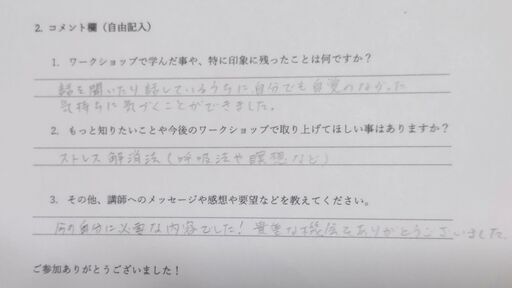 2. コメント欄（自由記入）
1. ワークショップで学んだ事や、特に印象に残ったことは何ですか？
話を聞いたり話しているうちに、自分でも自覚のなかった
気持ちに気づくことができました。
2. もっと知りたいことや今後のワークショップで取り上げてほしい事はありますか？
ストレス解消法（呼吸法や瞑想など）
3. その他、講師へのメッセージや感想や要望などを教えてください。
今の自分に必要な内容でした！貴重な機会をありがとうございました。
ご参加ありがとうございました！